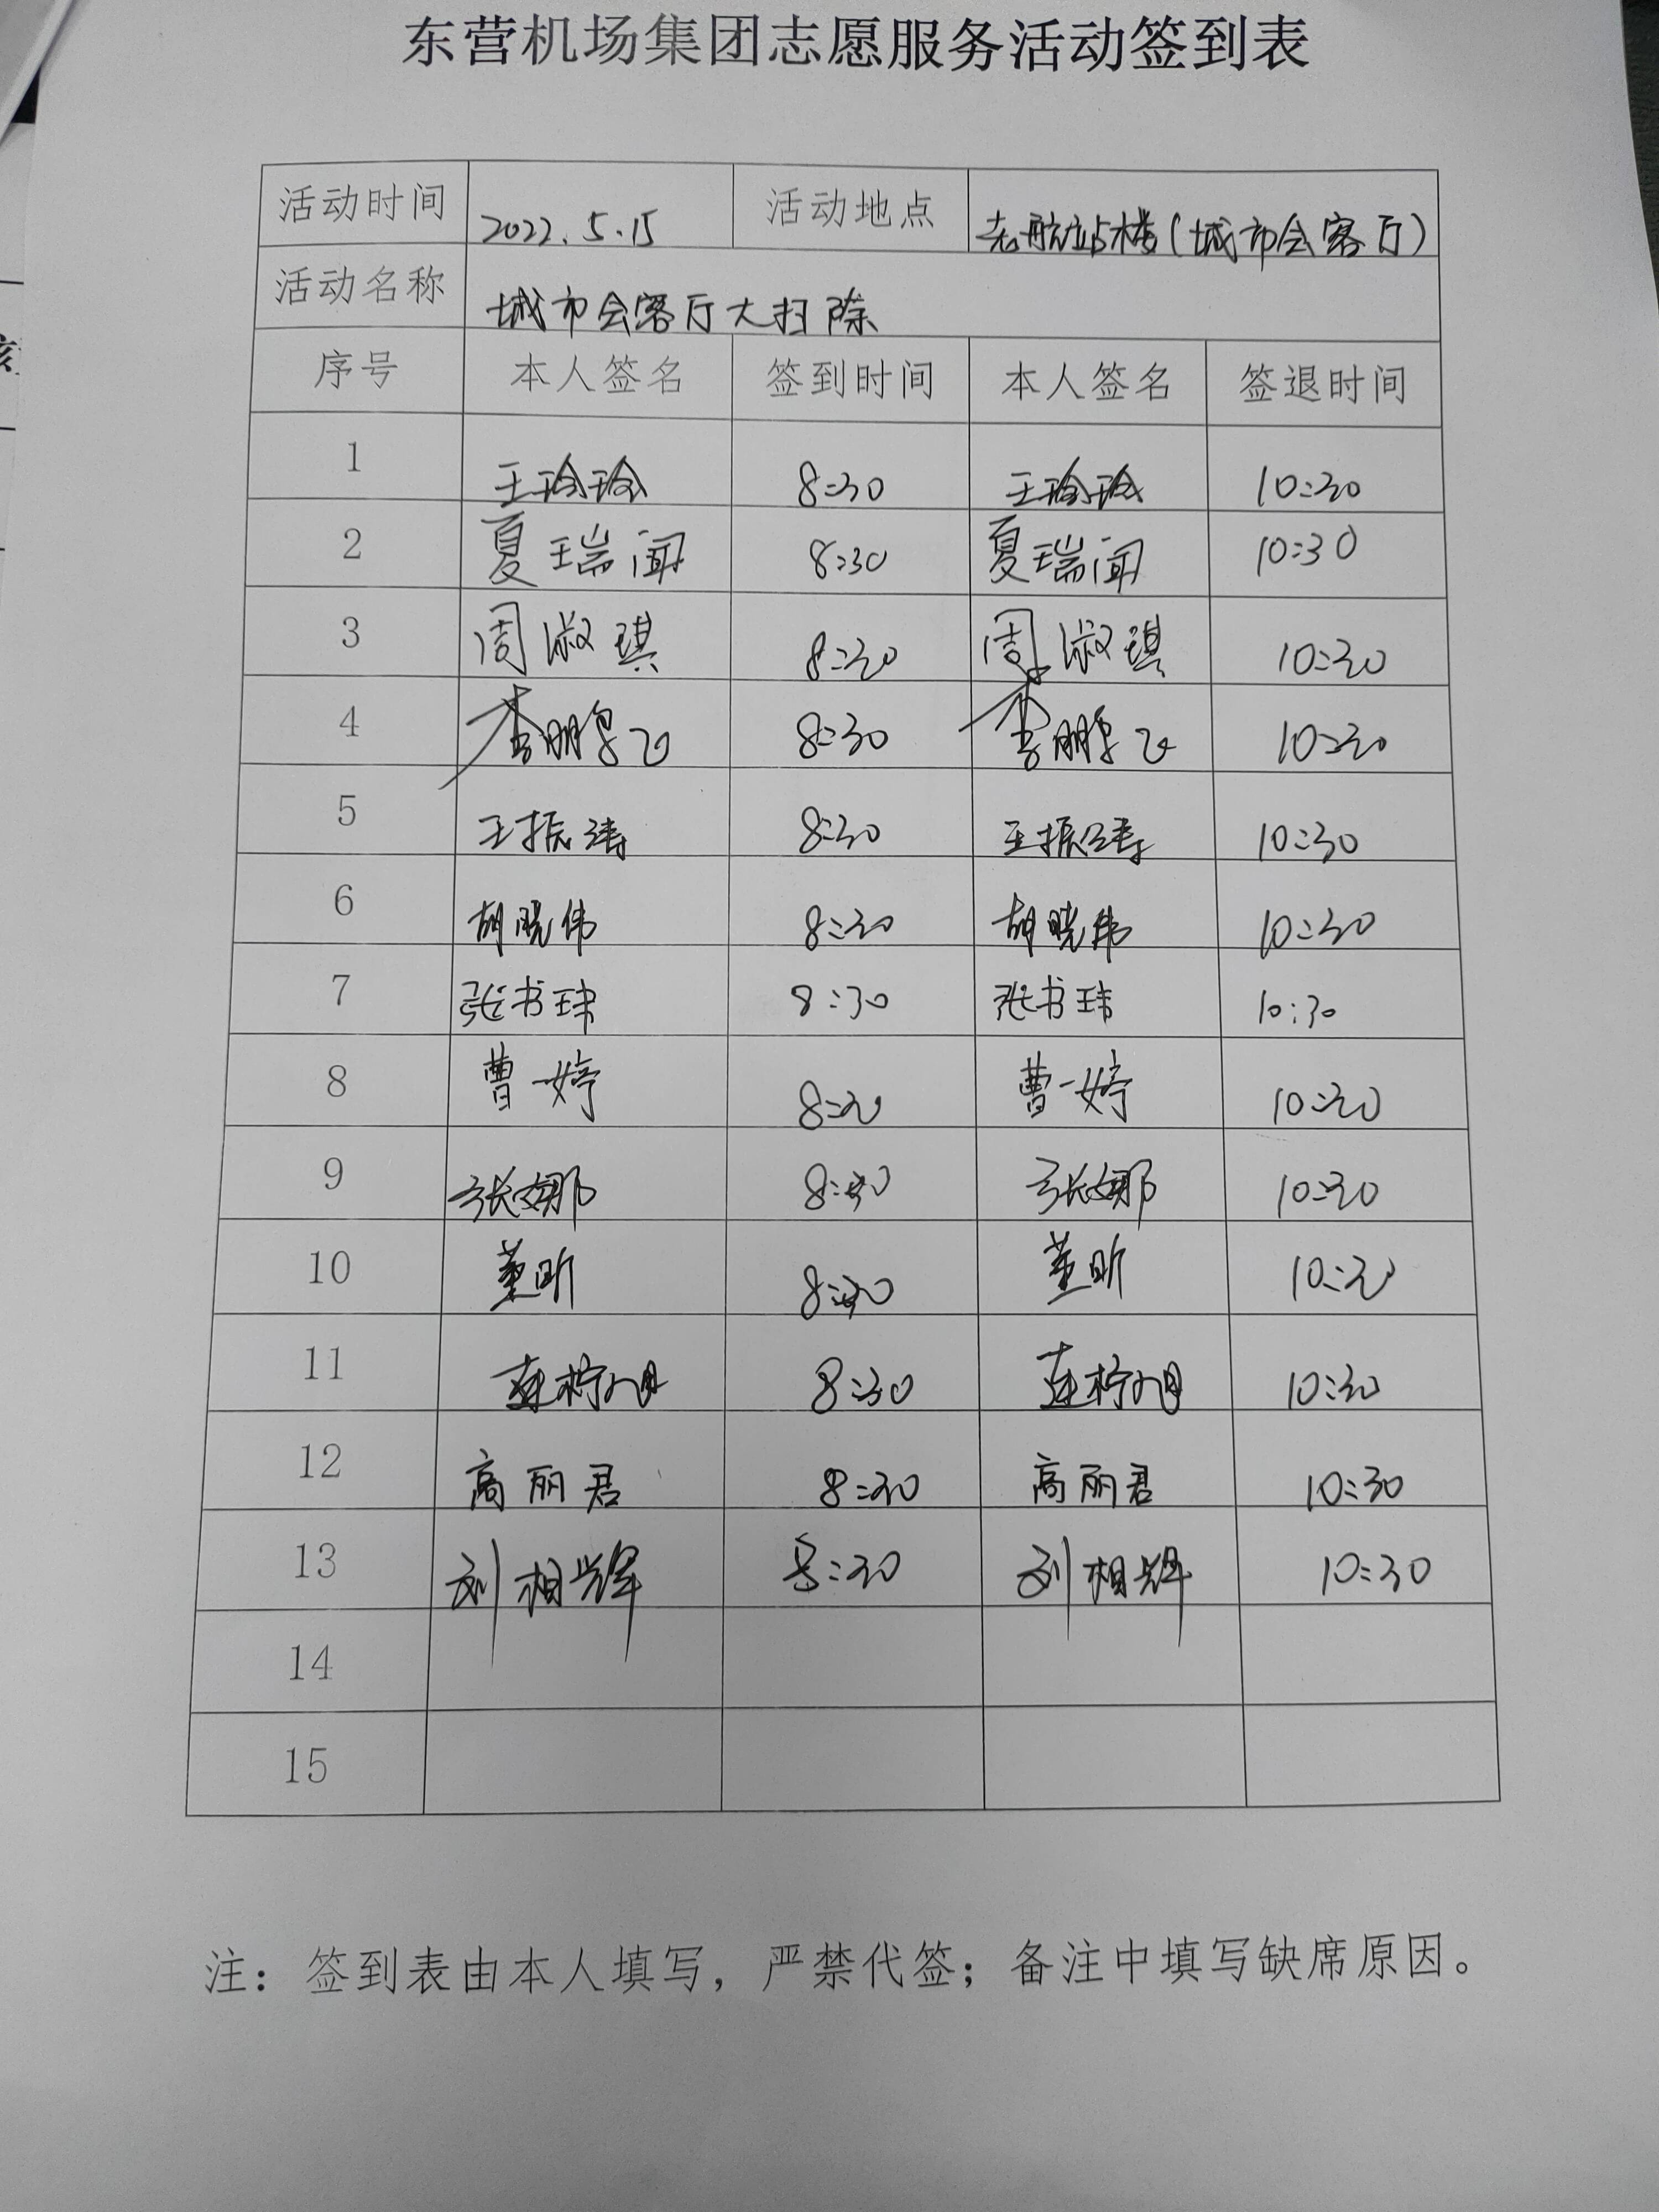 东营机场集团志愿服务活动签到表
活动时间 2022.5.15 活动地点 老航站楼(城市会客厅)
活动名称 城市会客厅大扫除
序号 本人签名 签到时间 本人签名 签退时间
1 王玲玲 8:30 王玲玲 10:30
2 夏瑞闻 8:30 夏瑞闻 10:30
3 周淑琪 8:30 周淑琪 10:30
4 李鹏飞 8:30 李鹏飞 10:30
5 王振涛 8:30 王振涛 10:30
6 胡晓伟 8:30 胡晓伟 10:30
7 张书玮 8:30 张书玮 10:30
8 曹一婷 8:30 曹一婷 10:30
9 张娜 8:30 张娜 10:30
10 董昕 8:30 董昕 10:30
11 8:30 10:30
12 高丽君 8:30 高丽君 10:30
13 刘相辉 8:30 刘相辉 10:30
14
15
注：签到表由本人填写，严禁代签；备注中填写缺席原因。